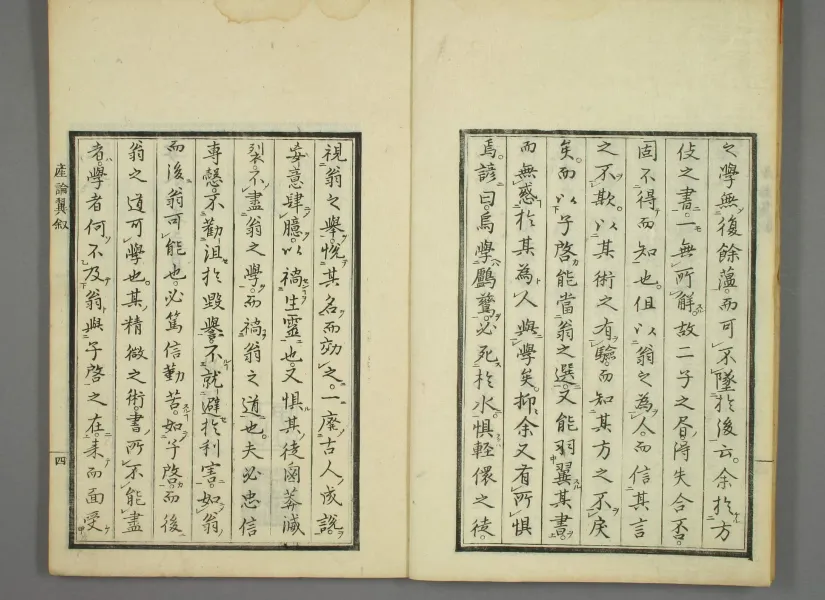 之學無後餘蘊。而可不墜於後云。余於方
伎之書。一無所解。故二子之 得失合否。
固不得而知也。但以翁之為人。而信其言
之不欺。以其術之有驗。而知其方之不戾
矣。而以子啓能當翁之選。又能羽翼其書。
而無惑於其為人與學矣。抑余又有所懼
焉。諺曰。烏學鸕鶿。必死於水。懼輕儇之徒。
視翁之擧。悅其名而効之。一廢古人成說。
妄意肆臆。以禍生靈也。又懼其徒鹵莽滅
裂。不盡翁之學。而禍翁之道也。夫必忠信
專慤。不勸沮於毀譽。不就避於利害。如翁
而後。翁可能也。必篤信勤苦。如子啓。而後
翁之道可學也。其精微之術。書所不能盡
者。學者何不及翁與子啓之在。來而面受
產論翼叙
四